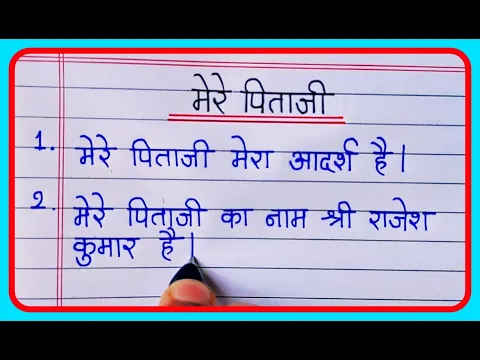 मेरे पिताजी
1. मेरे पिताजी मेरा आदर्श है।
2. मेरे पिताजी का नाम श्री राजेश
कुमार है।